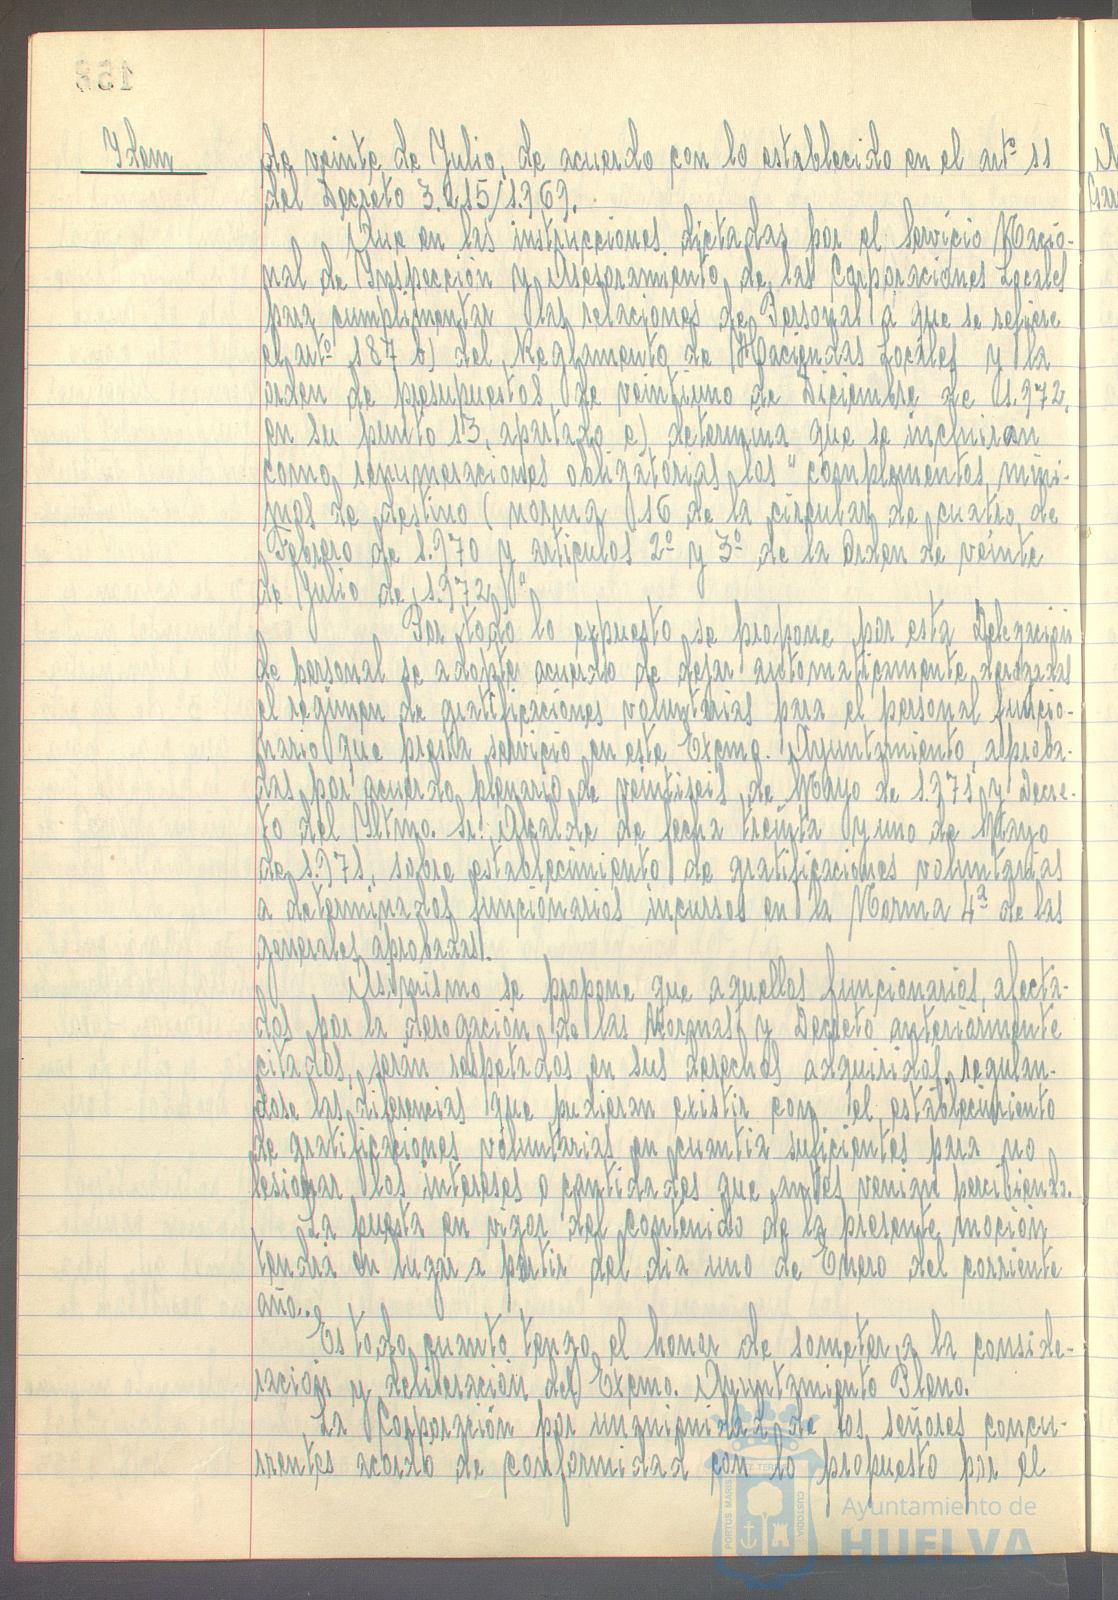 Idem
de veinte de Julio, de acuerdo con lo establecido en el artº 11
del Decreto 3.215/1.969.
Que en las instrucciones dictadas por el Servicio Nacio-
nal de Inspección y Asesoramiento de las Corporaciones Locales
para cumplimentar las relaciones de Personal a que se refiere
el artº 187 b) del Reglamento de Haciendas Locales y la
orden de presupuestos de veintiuno de Diciembre de 1.972,
en su punto 13, apartado e) determina que se incluiran
como remuneraciones obligatorias los "complementos míni-
mos de destino (norma 16 de la circular de cuatro de
Febrero de 1.970 y articulos 2º y 3º de la Orden de veinte
de Julio de 1.972)"
Por todo lo expuesto se propone por esta Delegación
de personal se adopte acuerdo de dejar automaticamente derogadas
el regimen de gratificaciones voluntarias para el personal funcio-
nario que presta servicio en este Excmo. Ayuntamiento, aproba-
das por acuerdo plenario de veintiseis de Mayo de 1.971 y Decre-
to del Iltmo. Sr. Alcalde de fecha treinta y uno de Mayo
de 1.971, sobre establecimiento de gratificaciones voluntarias
a determinados funcionarios incursos en la Norma 4ª de las
generales aprobadas.
Asimismo se propone que aquellos funcionarios, afecta-
dos por la derogación de las Normas y Decreto anteriormente
citados, serán respetados en sus derechos adquiridos, regulan-
dose las diferencias que pudieran existir con el establecimiento
de gratificaciones voluntarias en cuantia suficientes para no
lesionar los intereses o cantidades que antes venian percibiendo.
La puesta en vigor del contenido de la presente moción
tendrá en lugar a partir del dia uno de Enero del corriente
año.
Es todo cuanto tengo el honor de someter a la conside-
ración y deliberación del Excmo. Ayuntamiento Pleno.
La Corporación por unanimidad de los señores concu-
rrentes acordó de conformidad con lo propuesto por el
PORTUS MARIS ET TERRAE CUSTODIA
Ayuntamiento de
HUELVA